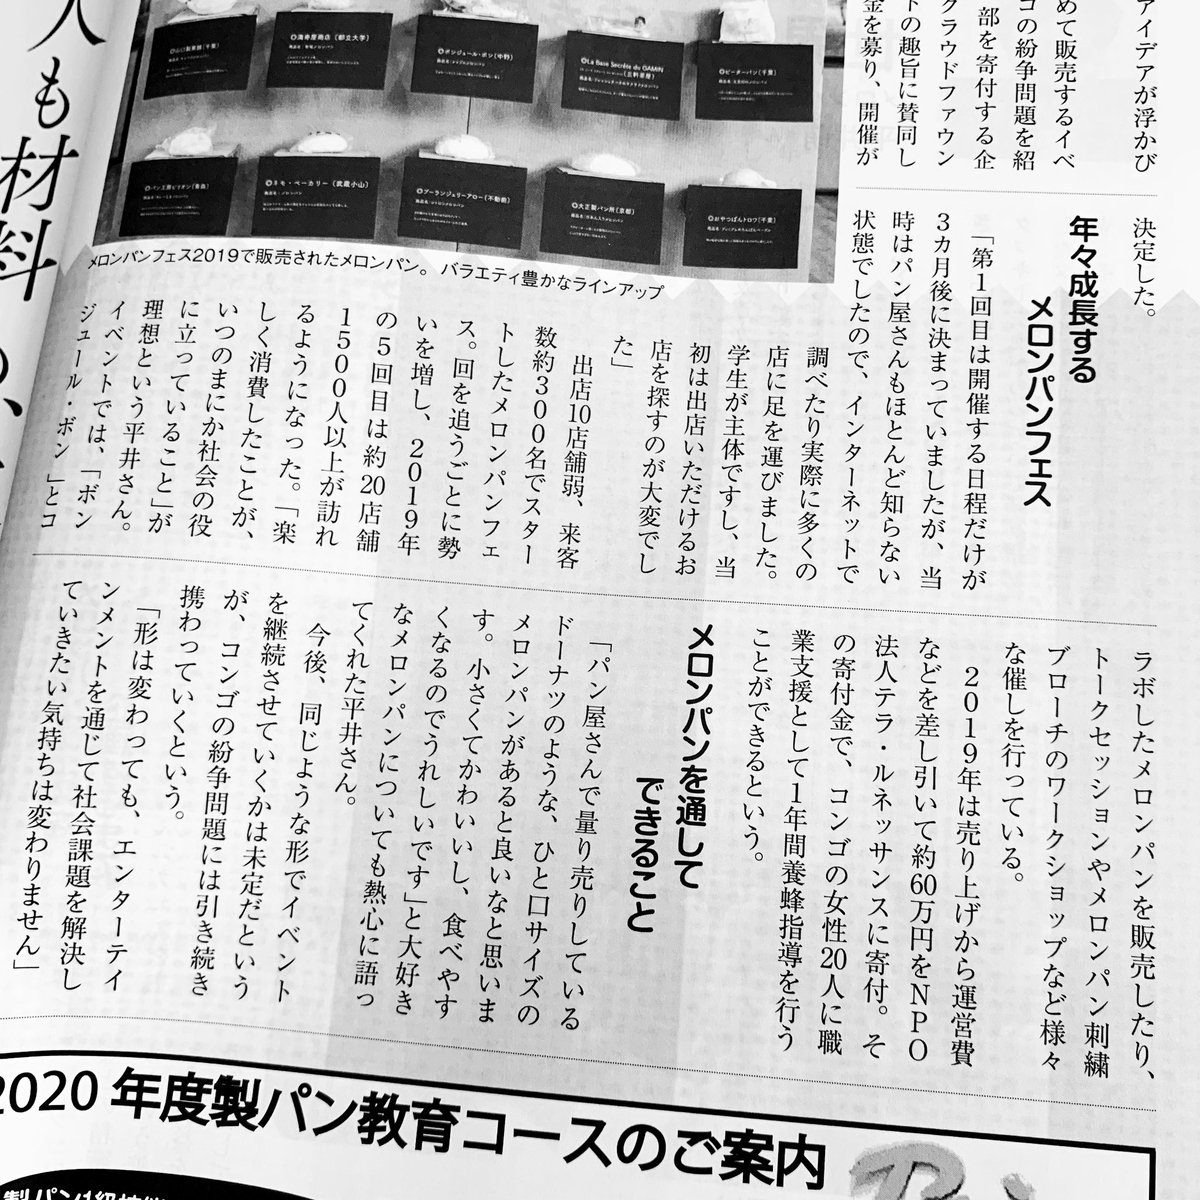 アイデアが浮かび
めて販売するイベ
コの紛争問題を紹
部を寄付する企
クラウドファウン
トの趣旨に賛同し
金を募り、開催が
決定した。
年々成長する
メロンパンフェス
「第1回目は開催する日程だけが
3カ月後に決まっていましたが、当
時はパン屋さんもほとんど知らない
状態でしたので、インターネットで
調べたり実際に多くの
店に足を運びました。
学生が主体ですし、当
初は出店いただけるお
店を探すのが大変でし
た」
出店10店舗弱、来客
数約300名でスター
トしたメロンパンフェ
ス。回を追うごとに勢
いを増し、2019年
の5回目は約20店舗
1500人以上が訪れ
るようになった。「楽
しく消費したことが、
いつのまにか社会の役
に立っていること」が
理想という平井さん。
イベントでは、「ボン
ジュール・ボン」とコ
ラボしたメロンパンを販売したり、
トークセッションやメロンパン刺繍
ブローチのワークショップなど様々
な催しを行っている。
2019年は売り上げから運営費
などを差し引いて約60万円をNPO
法人テラ・ルネッサンスに寄付。そ
の寄付金で、コンゴの女性20人に職
業支援として1年間養蜂指導を行う
ことができるという。
メロンパンを通して
できること
「パン屋さんで量り売りしている
ドーナツのような、ひと口サイズの
メロンパンがあると良いなと思いま
す。小さくてかわいいし、食べやす
くなるのでうれしいです」と大好き
なメロンパンについても熱心に語っ
てくれた平井さん。
今後、同じような形でイベント
を継続させていくかは未定だという
が、コンゴの紛争問題には引き続き
携わっていくという。
「形は変わっても、エンターテイ
ンメントを通じて社会課題を解決し
ていきたい気持ちは変わりません」
メロンパンフェス2019で販売されたメロンパン。バラエティ豊かなラインアップ
◎山口製菓舗（千葉）
◎満寿屋商店（都立大学）
◎ボンジュール・ボン（中野）
◎La Base Secrète du GAMIN
（三軒茶屋）
◎ピーターパン（千葉）
◎パン工房ピリオン（青森）
◎ネモ・ベーカリー（武蔵小山）
◎ブーランジュリーアロー（不動前）
◎大正製パン所（京都）
◎おやつぱんトロワ（千葉）
人も材料の、
2020 年度製パン教育コースのご案内